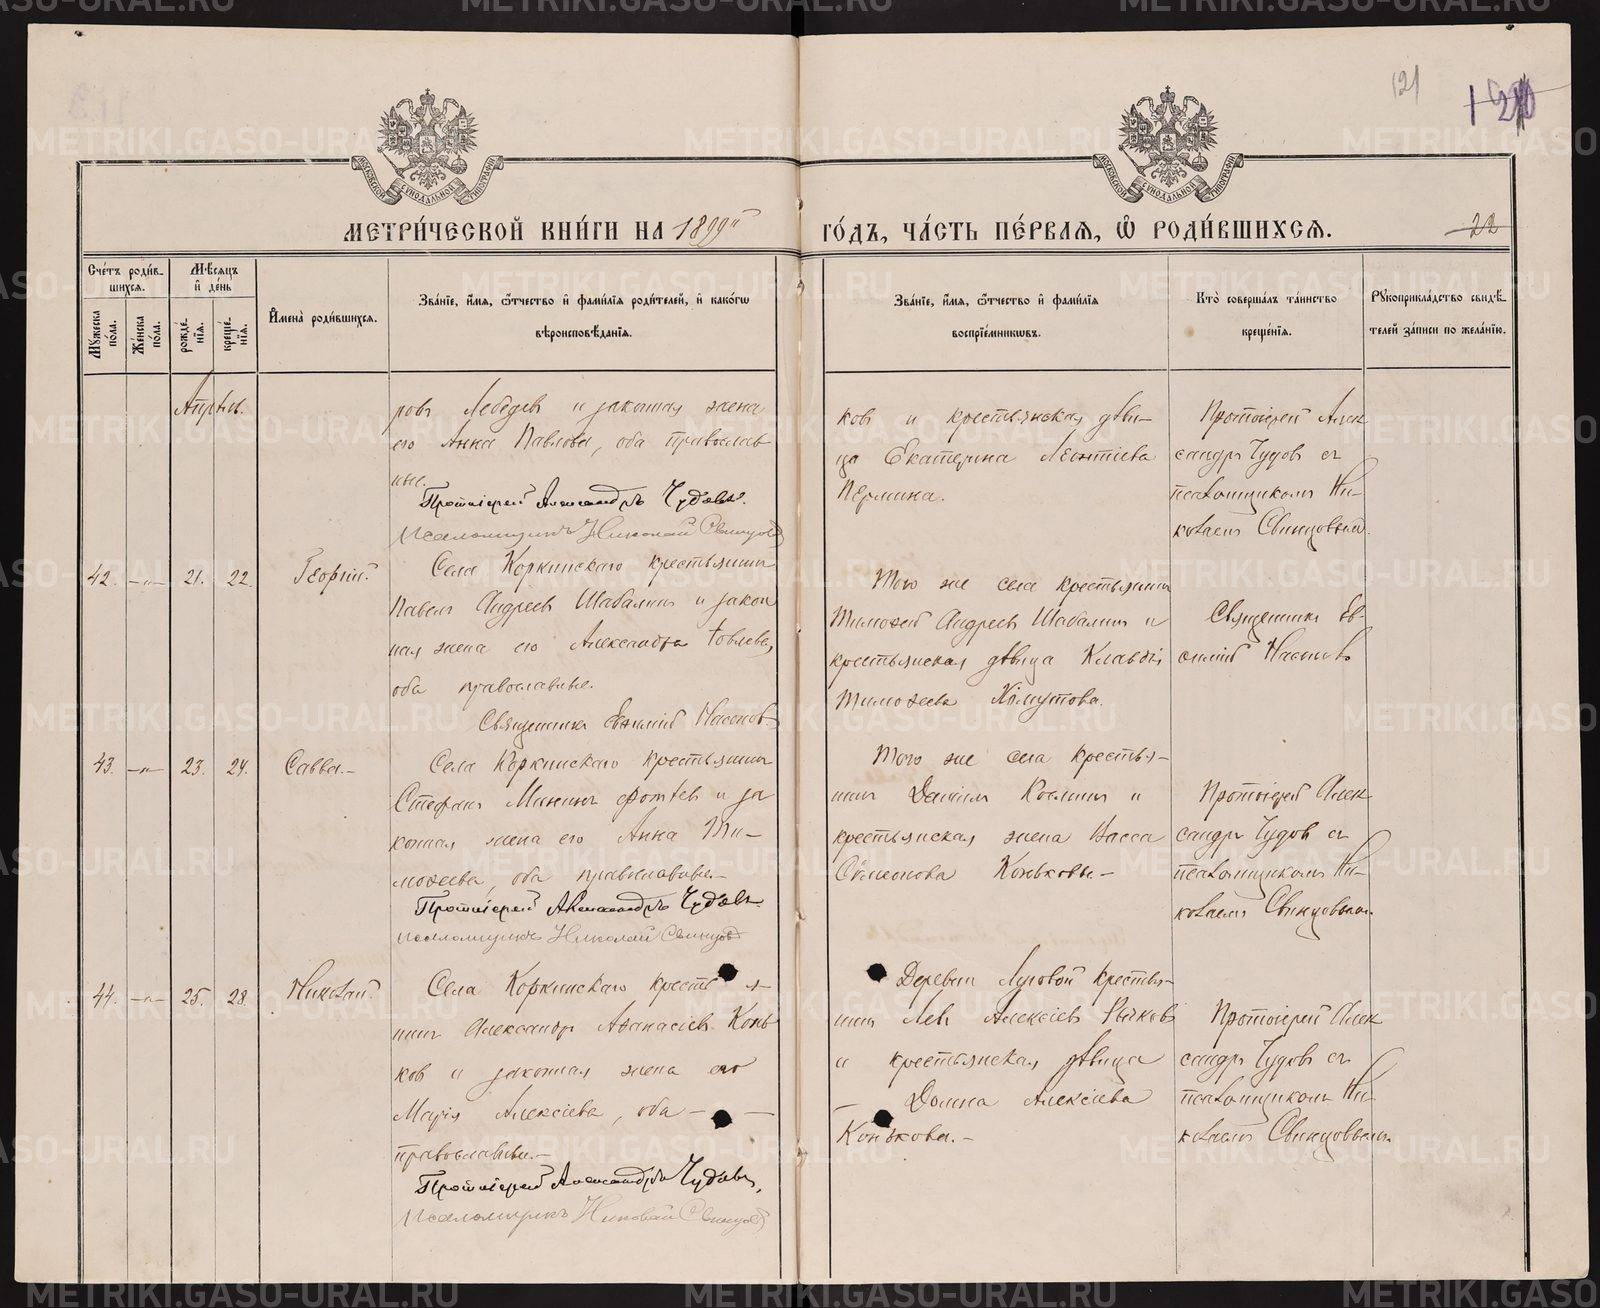 121
120
МЕТРИ́ЧЕСКОЙ КНИ́ГИ НА 1899й ГО́ДЪ, ЧА́СТЬ ПЕ́РВАѦ, Ѡ҆ РОДИ́ВШИХСѦ.
22
Сче́тъ роди́в-
шихсѧ.
Мѣ́сѧцъ
и҆ де́нь
Мꙋ́жеска
по́ла.
Же́нска
по́ла.
рожде́-
нїѧ.
креще́-
нїѧ.
И҆мена̀ роди́вшихсѧ.
Зва́нїе, и҆́мѧ, ѻ҆́тчество и҆ фами́лїѧ роди́телей, и҆ како́гѡ
вѣроисповѣ́данїѧ.
Зва́нїе, и҆́мѧ, ѻ҆́тчество и҆ фами́лїѧ
воспрїе́мникѡвъ.
Кто̀ соверша́лъ та́инство
креще́нїѧ.
Рꙋкоприкла́дство свидѣ́-
телей за́писи по жела́нїю.
Апрѣль.
ровъ Лебедевъ и законная жена
его Анна Павлова, оба православ
ные.
Протоіерей Александръ Чудовъ.
Псаломщикъ Николай Свинцовъ
ковъ и крестьянская дѣви-
ца Екатерина Леонтіева
Пермина.
Протоіерей Алек
сандръ Чудовъ съ
псаломщикомъ Ни-
колаемъ Свинцовымъ.
42. -"- 21. 22. Георгій.
Села Коркинскаго крестьянинъ
Павелъ Андреевъ Шабалинъ и закон
ная жена его Александра Іовлева,
оба православные.
Священникъ Евсимій Насоновъ
Того же села крестьянинъ
Тимоѳей Андреевъ Шабалинъ и
крестьянская дѣвица Клавдія
Тимоѳеева Хомутова.
Священникъ Ев-
симій Насоновъ
43. -"- 23. 24. Савва.-
Села Коркинскаго крестьянинъ
Стефанъ Мининъ Фотѣевъ и за
конная жена его Анна Ти-
моѳеева, оба православные.-
Протоіерей Александръ Чудовъ.
псаломщикъ Николай Свинцовъ
Того же села крестья-
нинъ Даніилъ Козминъ и
крестьянская жена Васса
Сѵмеонова Коньковы.-
Протоіерей Алек
сандръ Чудовъ съ
псаломщикомъ Ни-
колаемъ Свинцовымъ.
44. -"- 25. 28. Николай.
Села Коркинскаго крестья-
нинъ Александръ Аѳанасіевъ Конь
ковъ и законная жена его
Марія Алексіева, оба -
православные.-
Протоіерей Александръ Чудовъ,
Псаломщикъ Николай Свинцовъ
Деревни Луговой крестья-
нинъ Левъ Алексіевъ Рычковъ
и крестьянская дѣвица
- Домна Алексіева
Конькова.-
Протоіерей Алек
сандръ Чудовъ съ
псаломщикомъ Ни-
колаемъ Свинцовымъ.
METRIKI.GASO-URAL.RU